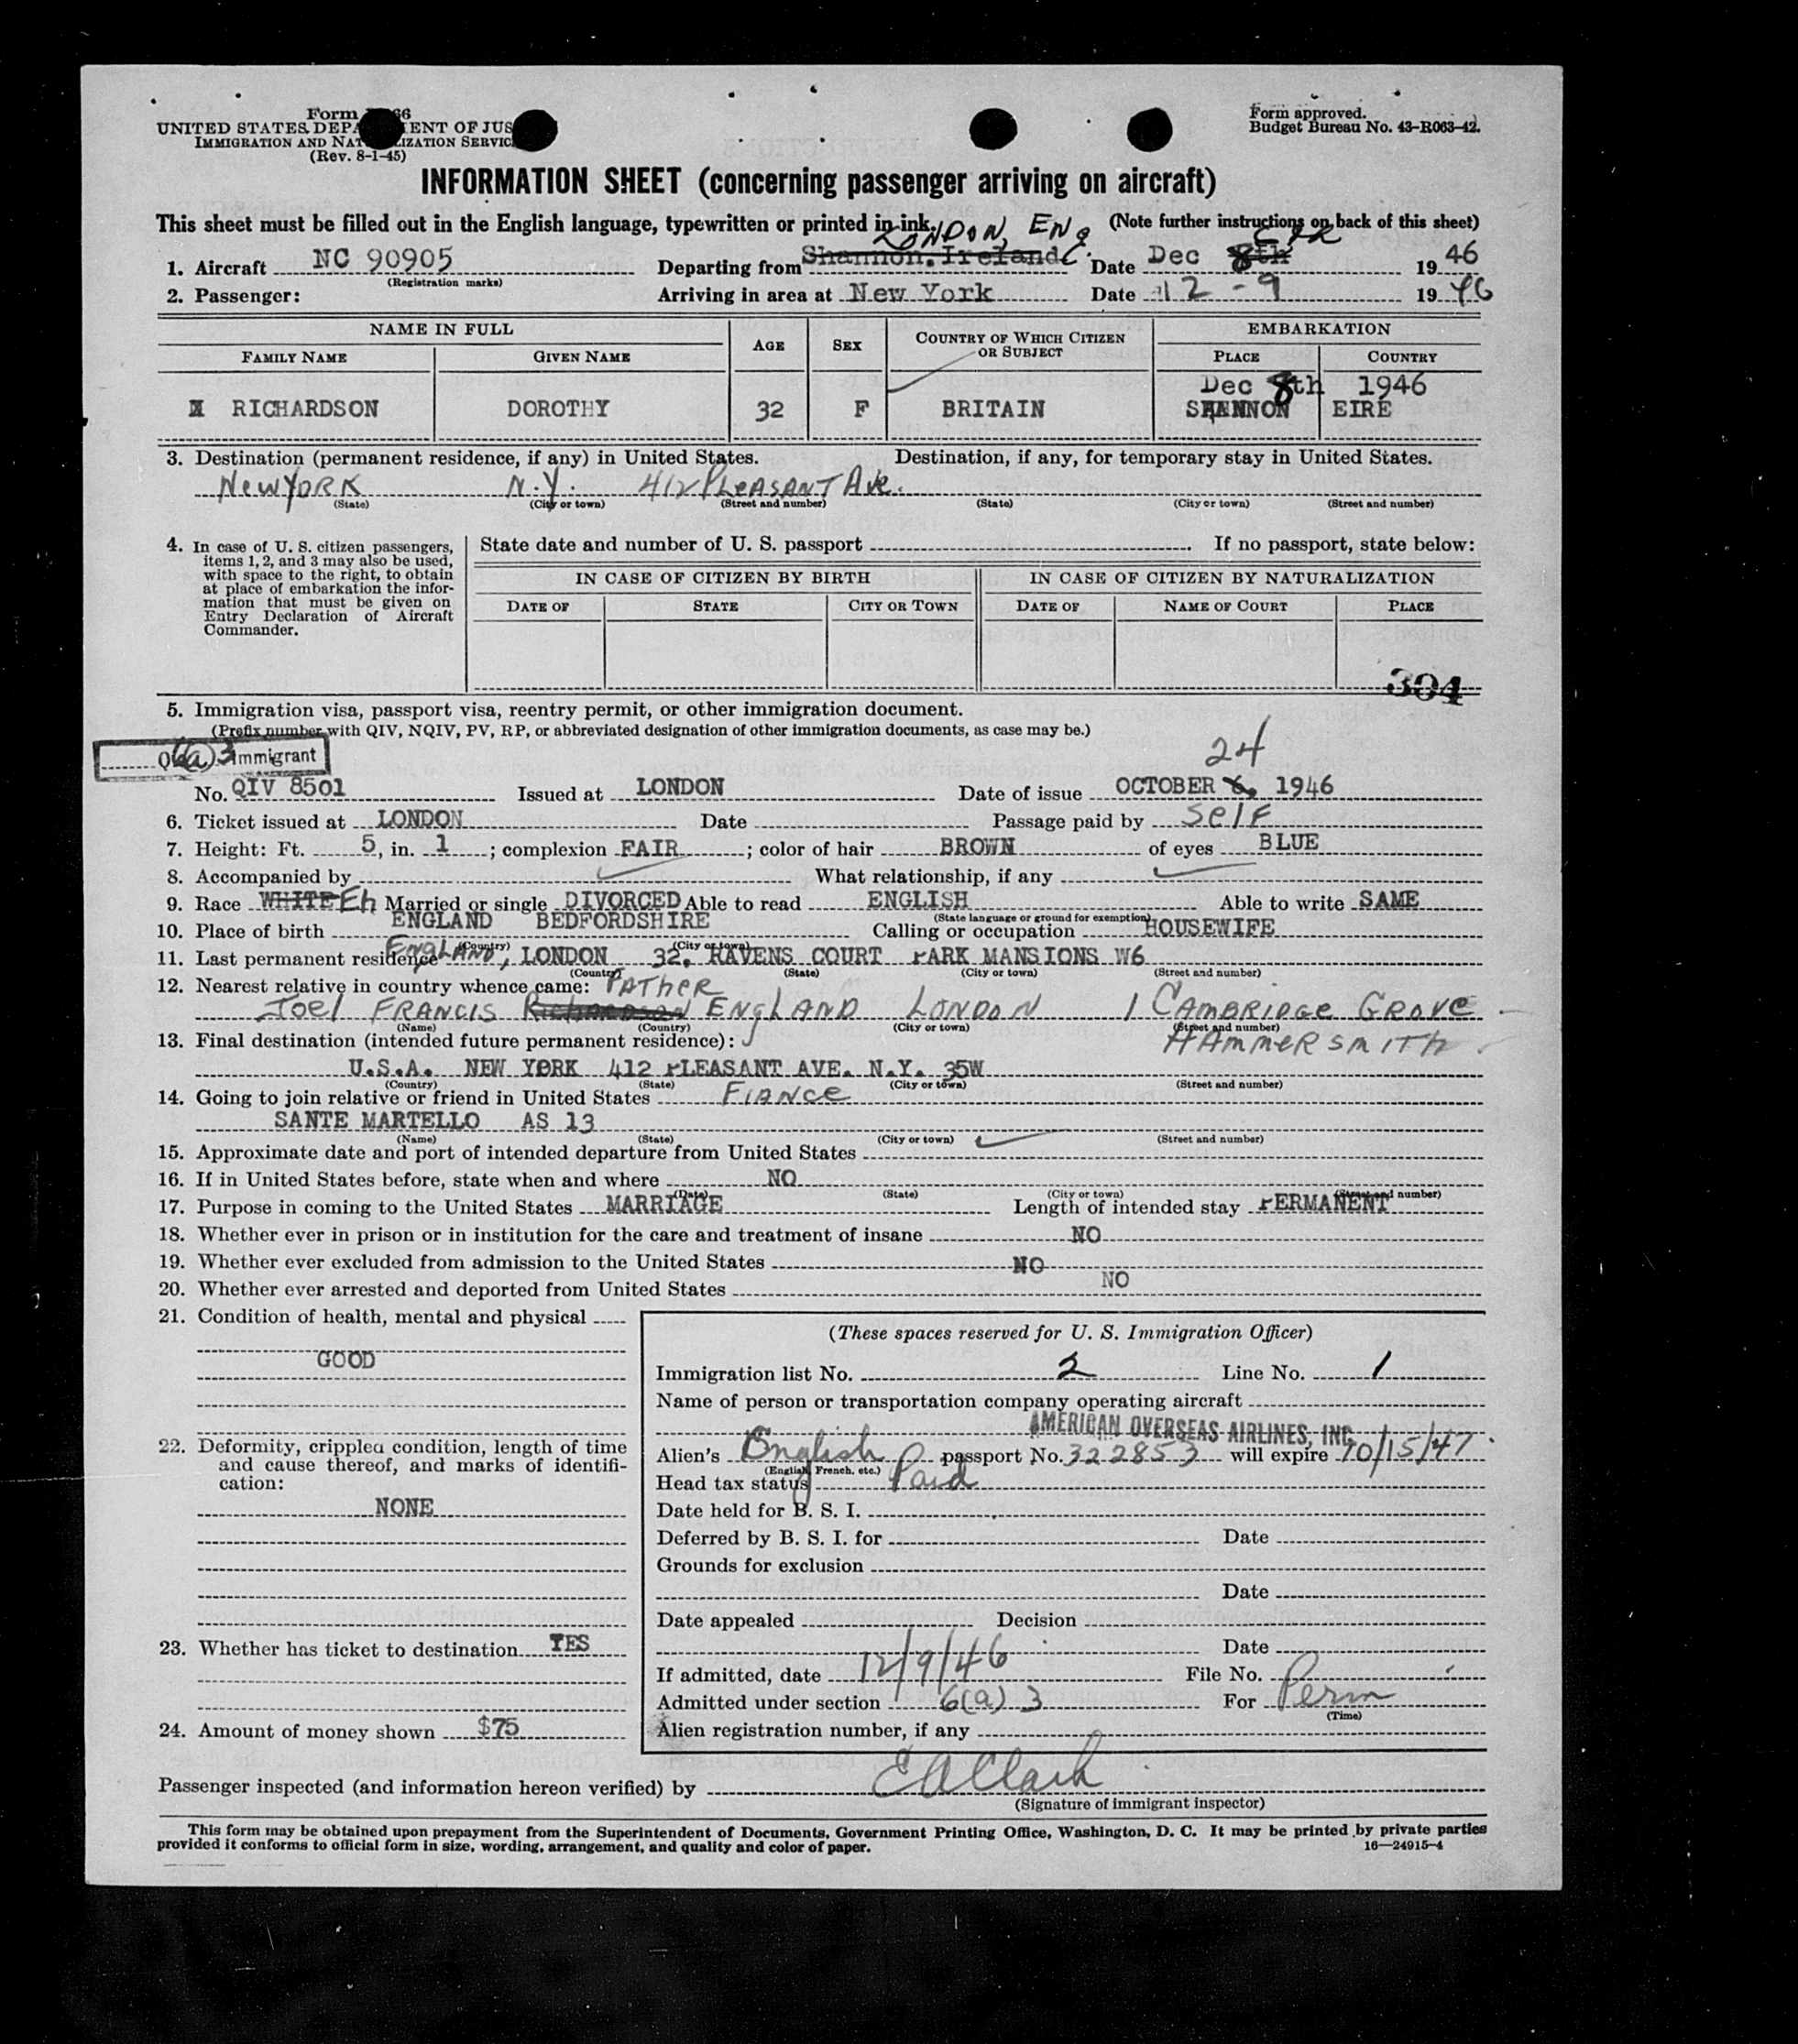 Form 66
UNITED STATES DEPA ENT OF JUS
IMMIGRATION AND NAT LIZATION SERVIC
(Rev. 8-1-45)
Form approved.
Budget Bureau No. 43-R063-42.
INFORMATION SHEET (concerning passenger arriving on aircraft)
This sheet must be filled out in the English language, typewritten or printed in ink. (Note further instructions on back of this sheet)
LONDON, ENg
1. Aircraft NC 90905 Departing from Shannon. Ireland Date Dec 8th 1946
(Registration marks)
2. Passenger: Arriving in area at New York Date 12-9 1946
NAME IN FULL AGE SEX COUNTRY OF WHICH CITIZEN OR SUBJECT EMBARKATION
FAMILY NAME GIVEN NAME PLACE COUNTRY
Dec 8th 1946
RICHARDSON DOROTHY 32 F BRITAIN SHANNON EIRE
3. Destination (permanent residence, if any) in United States. Destination, if any, for temporary stay in United States.
NewYORK N.Y. 412 PLeASANT Ave.
(State) (City or town) (Street and number) (State) (City or town) (Street and number)
4. In case of U. S. citizen passengers, items 1, 2, and 3 may also be used, with space to the right, to obtain at place of embarkation the information that must be given on Entry Declaration of Aircraft Commander.
State date and number of U. S. passport . If no passport, state below:
IN CASE OF CITIZEN BY BIRTH IN CASE OF CITIZEN BY NATURALIZATION
DATE OF STATE CITY OR TOWN DATE OF NAME OF COURT PLACE
304
5. Immigration visa, passport visa, reentry permit, or other immigration document.
(Prefix number with QIV, NQIV, PV, RP, or abbreviated designation of other immigration documents, as case may be.)
6(a)3 Immigrant
24
No. QIV 8501 Issued at LONDON Date of issue OCTOBER 6, 1946
6. Ticket issued at LONDON Date Passage paid by SelF
7. Height: Ft. 5, in. 1; complexion FAIR; color of hair BROWN of eyes BLUE
8. Accompanied by What relationship, if any
9. Race WHITE Eh Married or single DIVORCED Able to read ENGLISH Able to write SAME
(State language or ground for exemption)
10. Place of birth ENGLAND BEDFORDSHIRE Calling or occupation HOUSEWIFE
(Country) (City or town)
11. Last permanent residence EngLAND, LONDON 32, RAVENS COURT PARK MANSIONS W6
(Country) (State) (City or town) (Street and number)
12. Nearest relative in country whence came: FATHeR
Joel FRANCIS Richardson ENgLAND LONDON 1 CAMBRIDGE GROVe
(Name) (Country) (City or town) (Street and number)
HAmmeRsmITh
13. Final destination (intended future permanent residence):
U.S.A. NEW YORK 412 PLEASANT AVE. N.Y. 35W
(Country) (State) (City or town) (Street and number)
14. Going to join relative or friend in United States FIANCe
SANTE MARTELLO AS 13
(Name) (State) (City or town) (Street and number)
15. Approximate date and port of intended departure from United States
16. If in United States before, state when and where NO
(Date) (State) (City or town) (Street and number)
17. Purpose in coming to the United States MARRIAGE Length of intended stay PERMANENT
18. Whether ever in prison or in institution for the care and treatment of insane NO
19. Whether ever excluded from admission to the United States NO
20. Whether ever arrested and deported from United States NO
21. Condition of health, mental and physical
GOOD
22. Deformity, crippled condition, length of time and cause thereof, and marks of identification:
NONE
23. Whether has ticket to destination YES
24. Amount of money shown $75
(These spaces reserved for U. S. Immigration Officer)
Immigration list No. 2 Line No. 1
Name of person or transportation company operating aircraft
AMERICAN OVERSEAS AIRLINES, INC.
Alien's English passport No. 322853 will expire 10/15/47
(English, French, etc.)
Head tax status Paid
Date held for B. S. I.
Deferred by B. S. I. for Date
Grounds for exclusion
Date
Date appealed Decision
Date
If admitted, date 12/9/46 File No.
Admitted under section 6(a) 3 For Perm
(Time)
Alien registration number, if any
Passenger inspected (and information hereon verified) by EA Clark
(Signature of immigrant inspector)
This form may be obtained upon prepayment from the Superintendent of Documents, Government Printing Office, Washington, D. C. It may be printed by private parties
provided it conforms to official form in size, wording, arrangement, and quality and color of paper. 16—24915-4